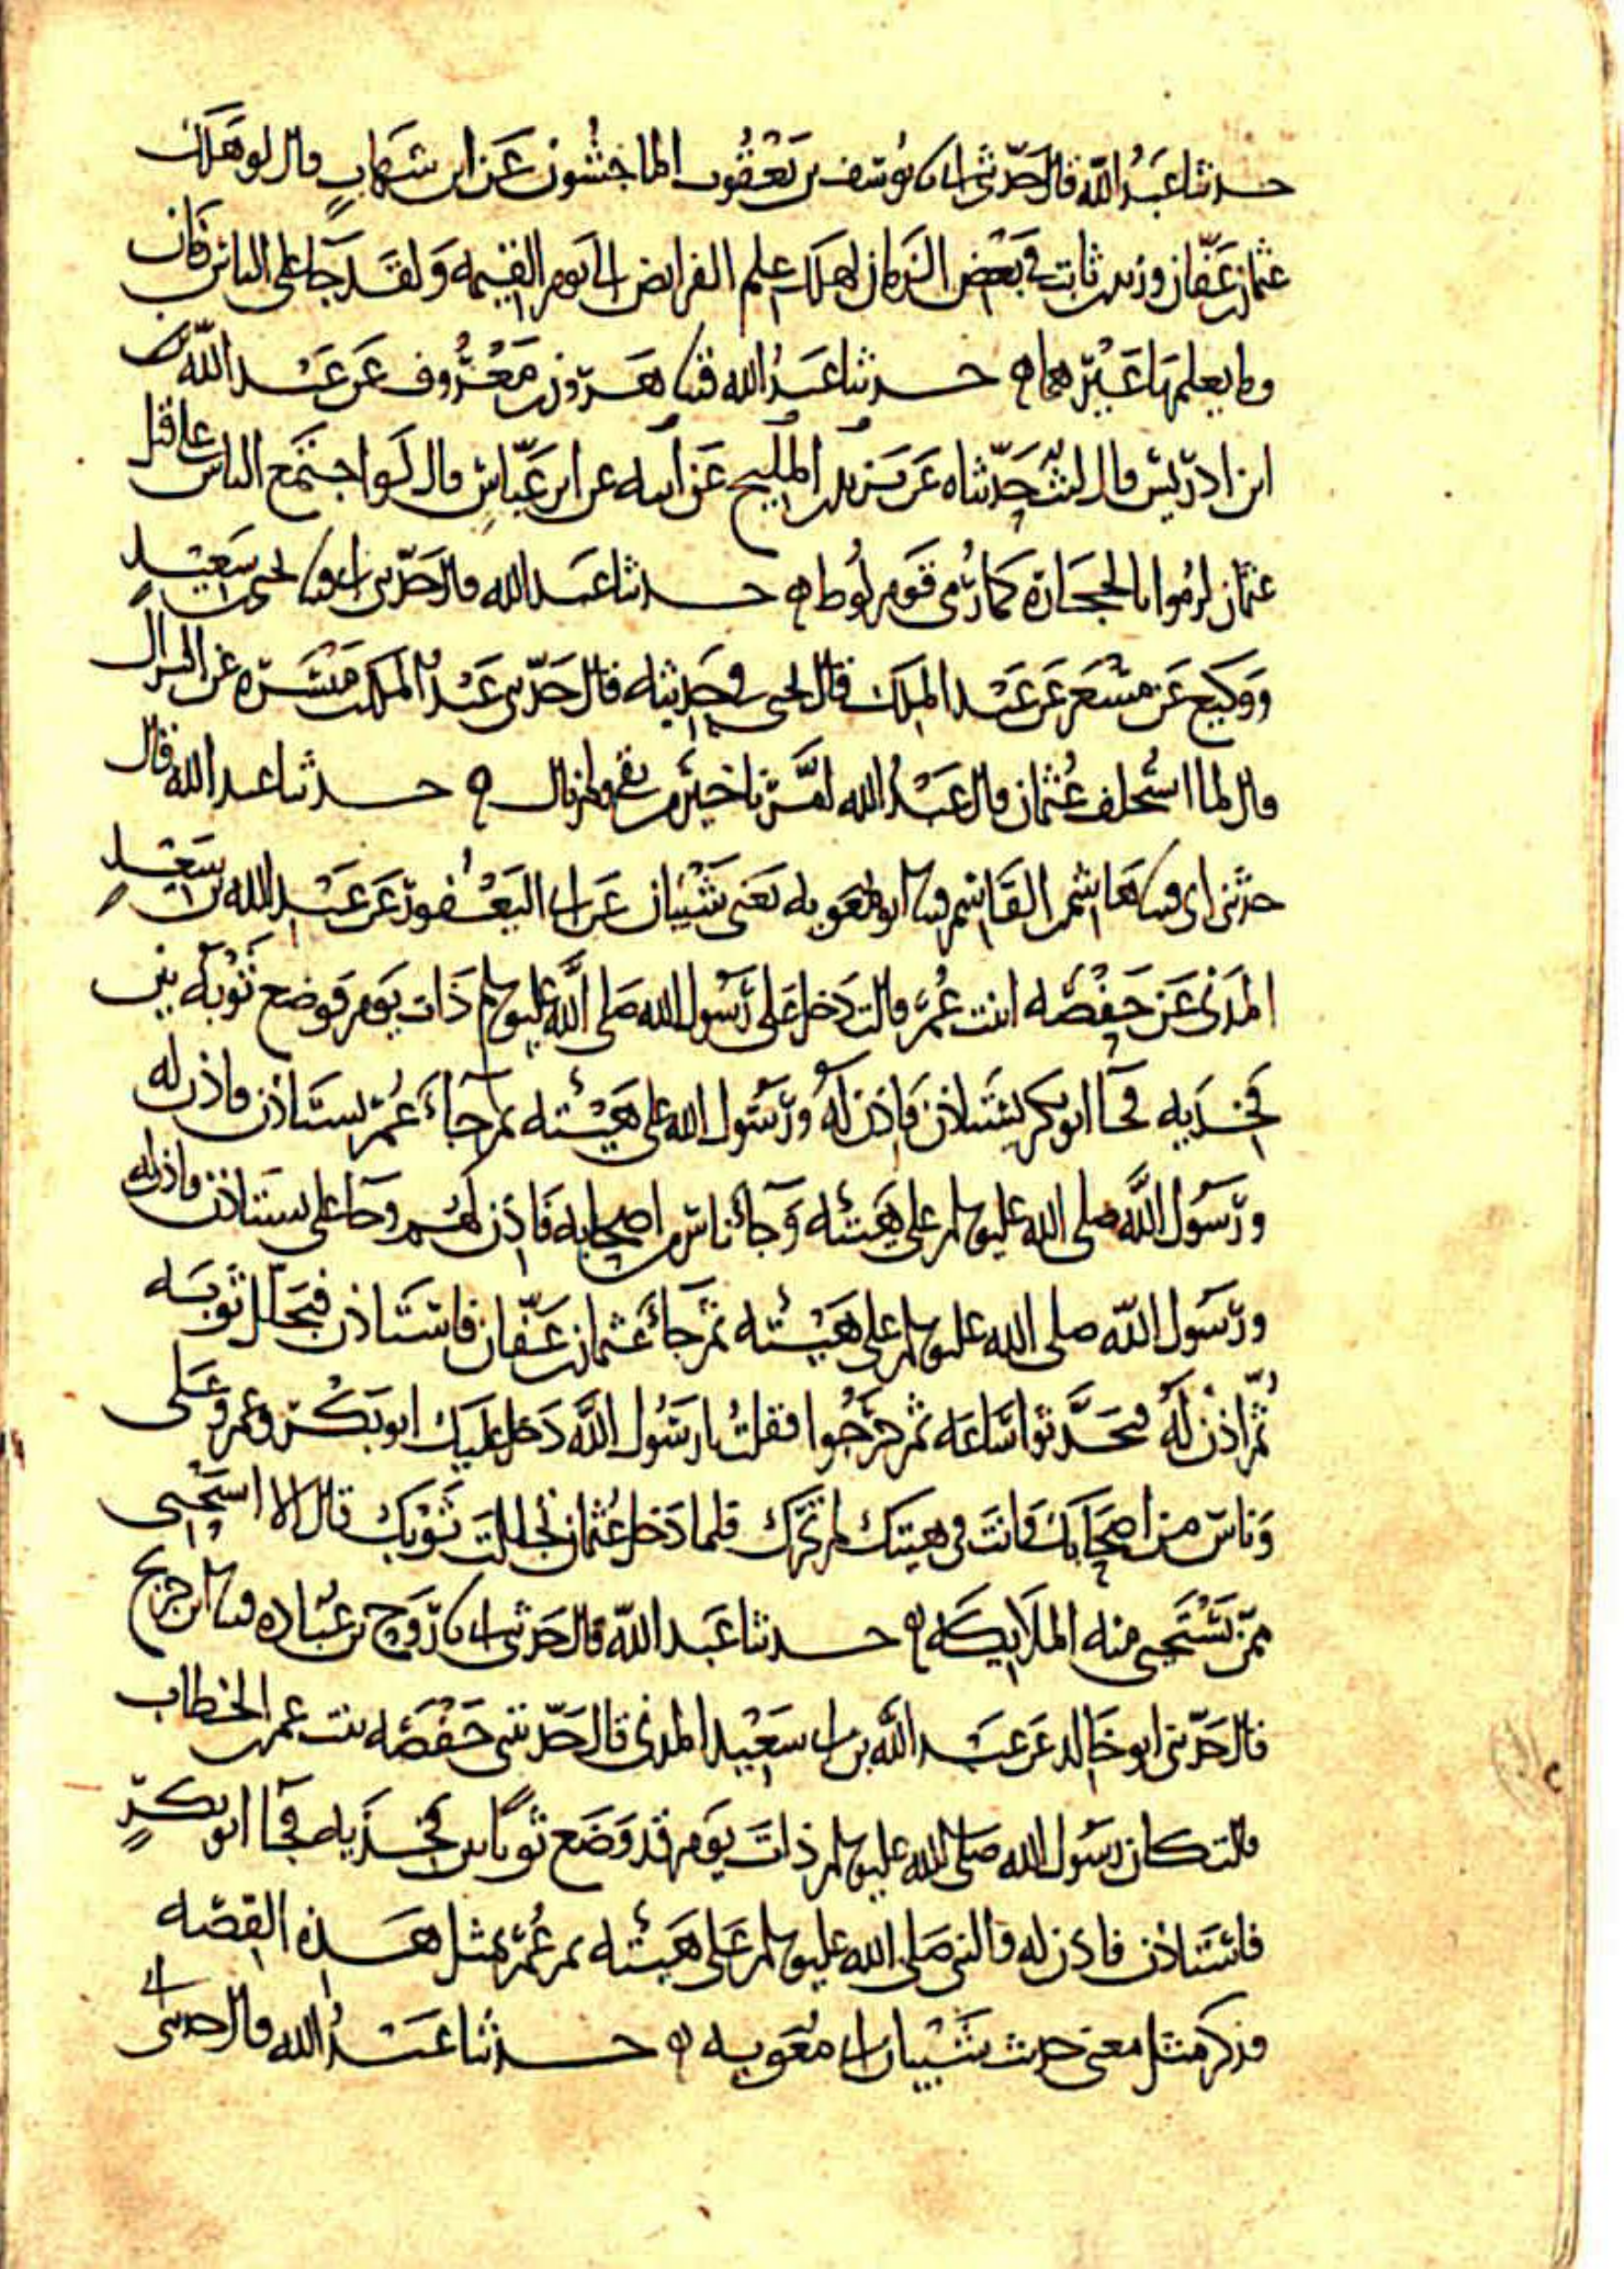 حدثنا عبد الله قال حدثني ابي نا يوسف بن يعقوب الماجشون عن ابن شهاب قال لو هلك
عثمان بن عفان وزيد بن ثابت في بعض الزمان لهلك علم الفرايض الى يوم القيمه ولقد جا على الناس زمان
وما يعلمها غيرهما ه حدثنا عبد الله قثنا هرون بن معروف عن عبد الله
ابن ادريس قال ليث حدثناه عن بن ابي المليح عن ابيه عن ابن عباس قال لو اجتمع الناس على قتل
عثمان لرموا بالحجارة كما رمي قوم لوط ه حدثنا عبد الله قال حدثني ابي قثنا يحيى بن سعيد
ووكيع عن مسعر عن عبد الملك قال يحيى في حديثه قال حدثني عبد الملك بن ميسرة عن النزال
قال لما استخلف عثمان قال عبد الله امرنا خير من بقي ولم نال ه حدثنا عبد الله قال
حدثني ابي قثنا هاشم بن القاسم قثنا ابو معويه يعني شيبان عن ابي اليعفور عن عبد الله بن ابي سعيد
المدني عن حفصه ابنت عمر قالت دخل علي رسول الله صلى الله عليه وسلم ذات يوم فوضع ثوبه بين
فخذيه فجآ ابو بكر يستاذن فاذن له ورسول الله على هيئته ثم جاء عمر يستاذن فاذن له
ورسول الله صلى الله عليه وسلم على هيئته وجا ناس من اصحابه فاذن لهم وجا علي يستاذن فاذن له
ورسول الله صلى الله عليه وسلم على هيئته ثم جاء عثمان بن عفان فاستاذن فتجلل ثوبه
ثم اذن له فتحدثوا ساعه ثم خرجوا فقلت يا رسول الله دخل عليك ابو بكر وعمر وعلي
وناس من اصحابك وانت في هيئتك لم تحرك فلما دخل عثمان تجللت ثوبك قال الا استحيي
ممن تستحيي منه الملايكه ه حدثنا عبد الله قال حدثني ابي نا روح بن عباده قثنا ابن جريج
قال حدثني ابو خالد عن عبد الله بن ابي سعيد المدني قال حدثتني حفصه بنت عمر بن الخطاب
قالت كان رسول الله صلى الله عليه وسلم ذات يوم قد وضع ثوبا بين فخذيه فجآ ابو بكر
فاستاذن فاذن له والنبي صلى الله عليه وسلم على هيئته ثم عمر بمثل هذه القصه
فذكر مثل معنى حديث شيبان ابي معويه ه حدثنا عبد الله قال حدثني ابي